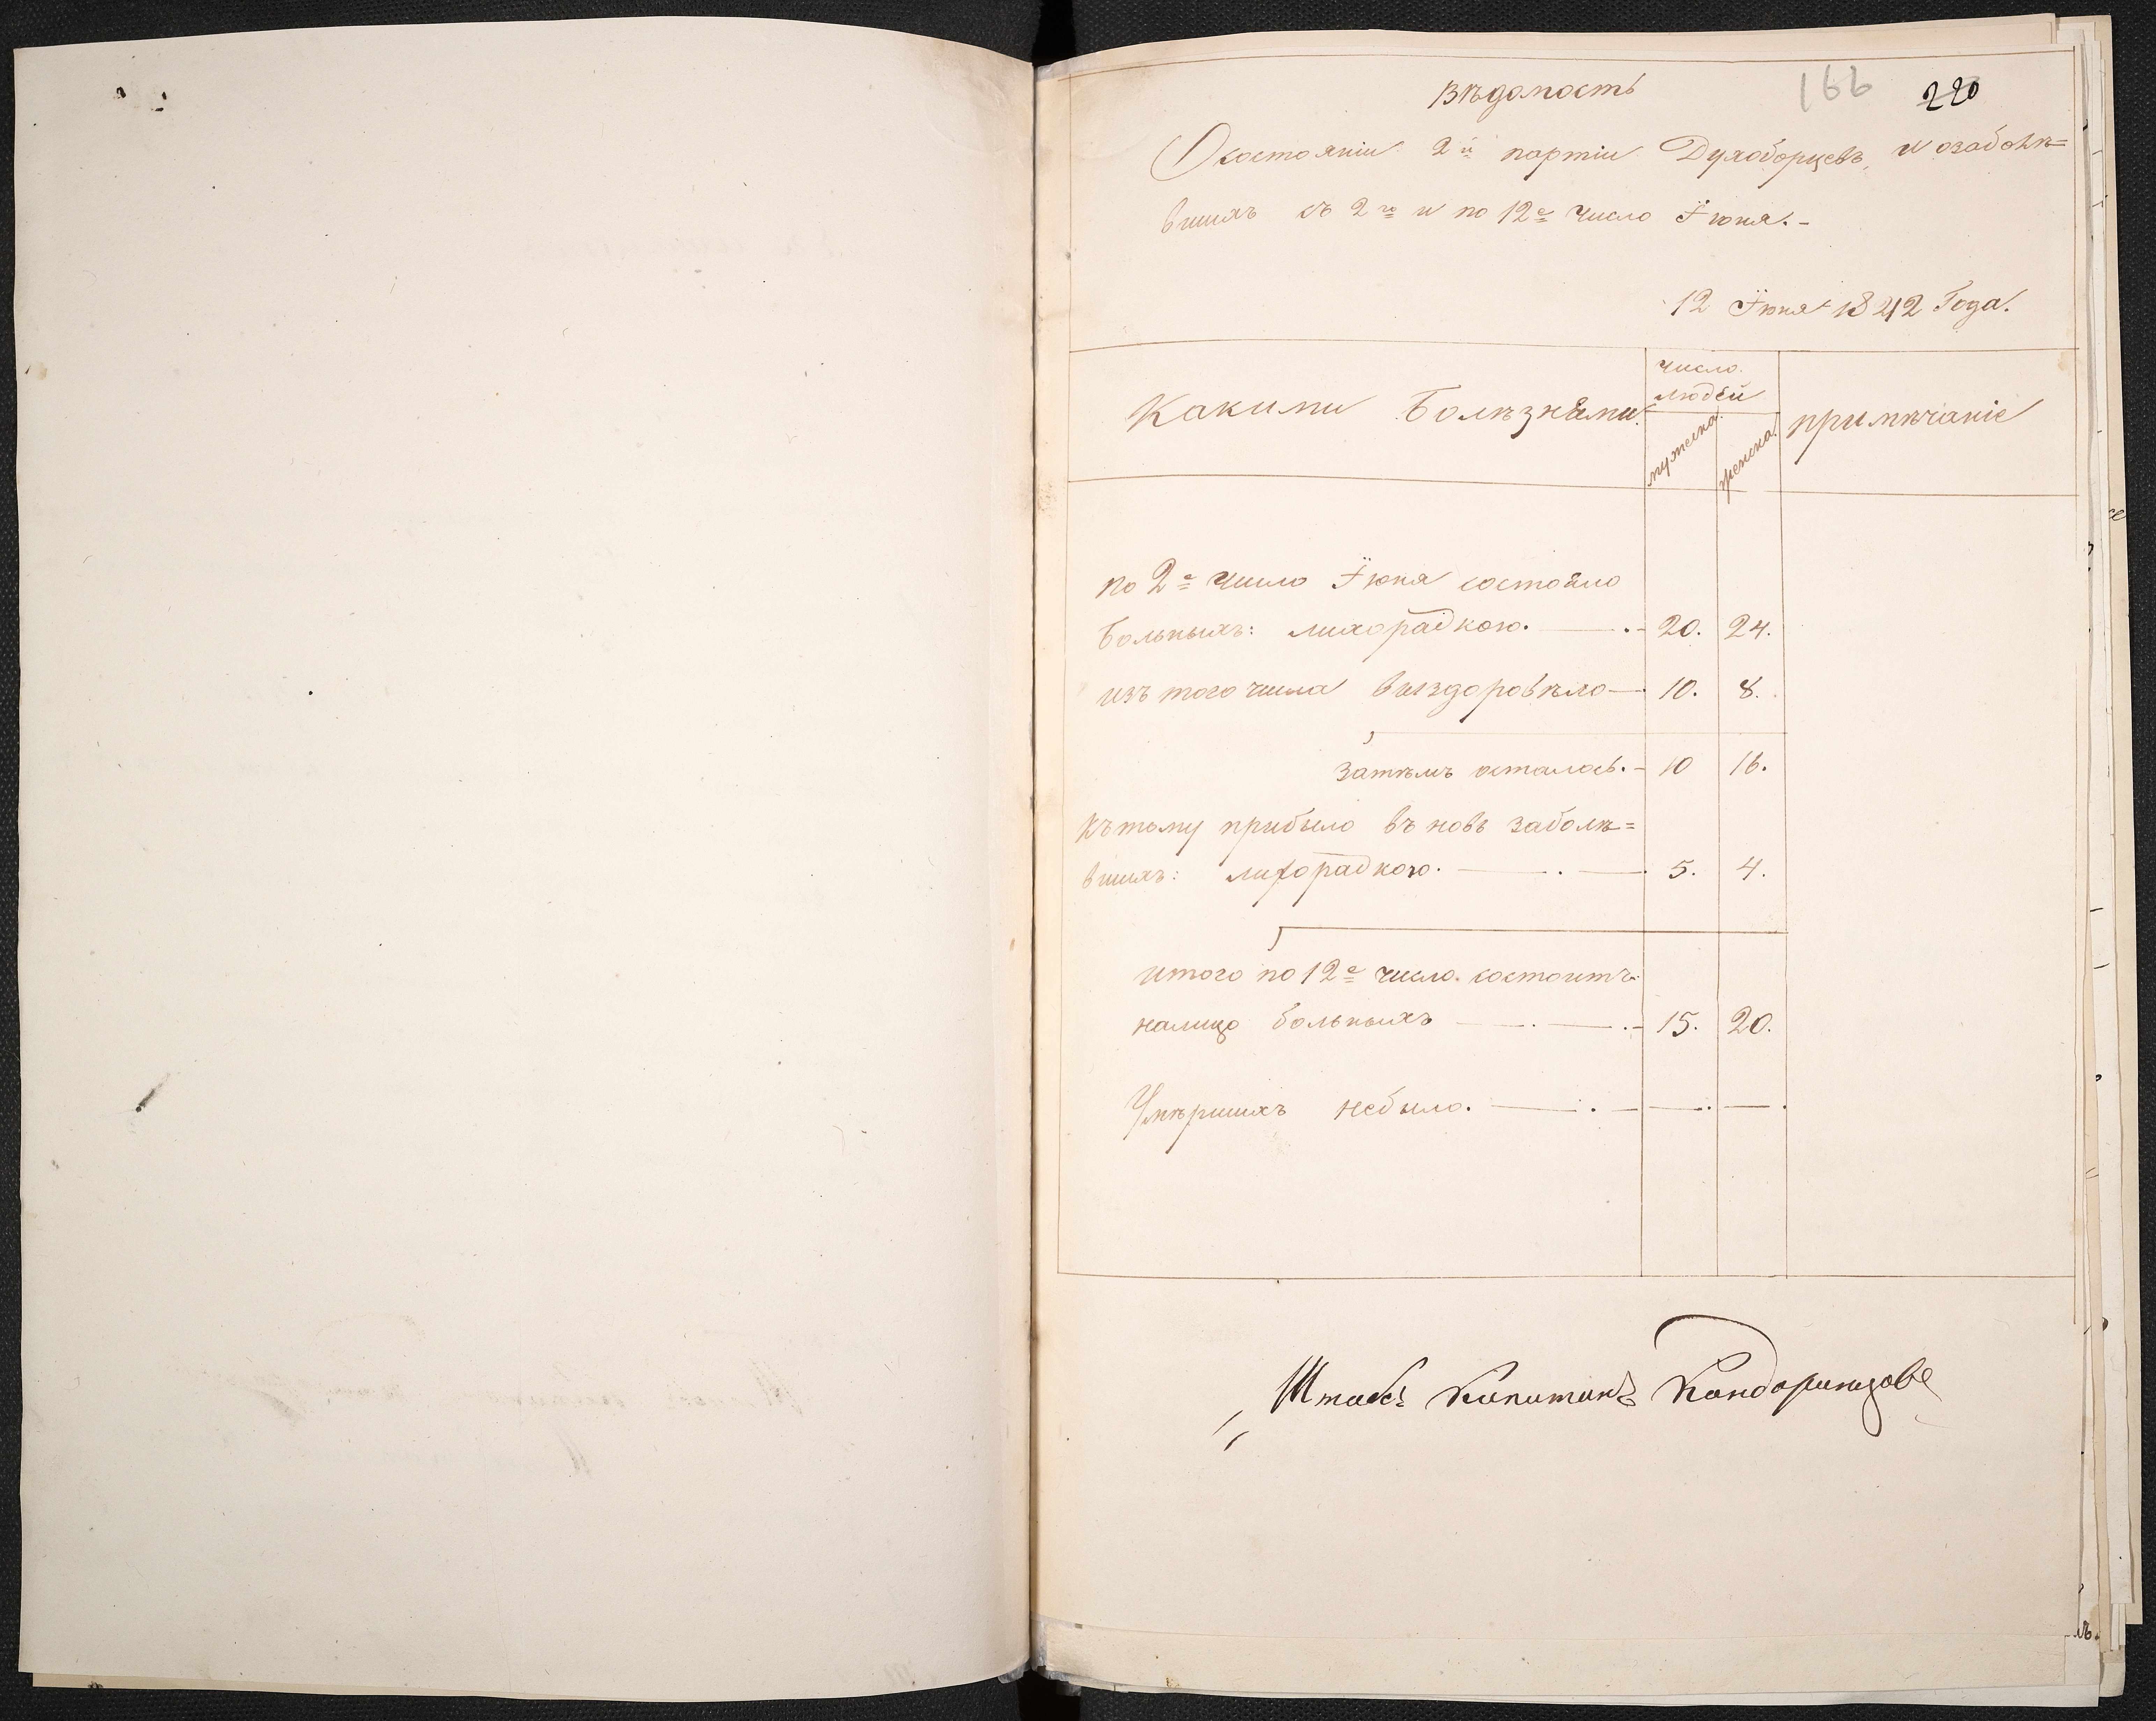 166 220
Вѣдомость
О состоянiи 2й партiи Духоборцевъ, и озаболѣ=
вшихъ съ 2го и по 12е число Iюня.-
12 Iюня 1842 Года.
Какими Болѣзнями.
число людей
мужеска.
женска.
примѣчанiе
по 2е число Iюня состояло
больныхъ: лихорадкою. 20. 24.
изъ того числа выздоровѣло 10. 8.
затѣмъ осталось. 10 16.
Къ тому прибыло въ новь заболѣ=
вшихъ: лихорадкою. 5. 4.
итого по 12е число состоитъ
налицо больныхъ 15. 20.
Умѣршихъ небыло.
Штабсъ Капитанъ